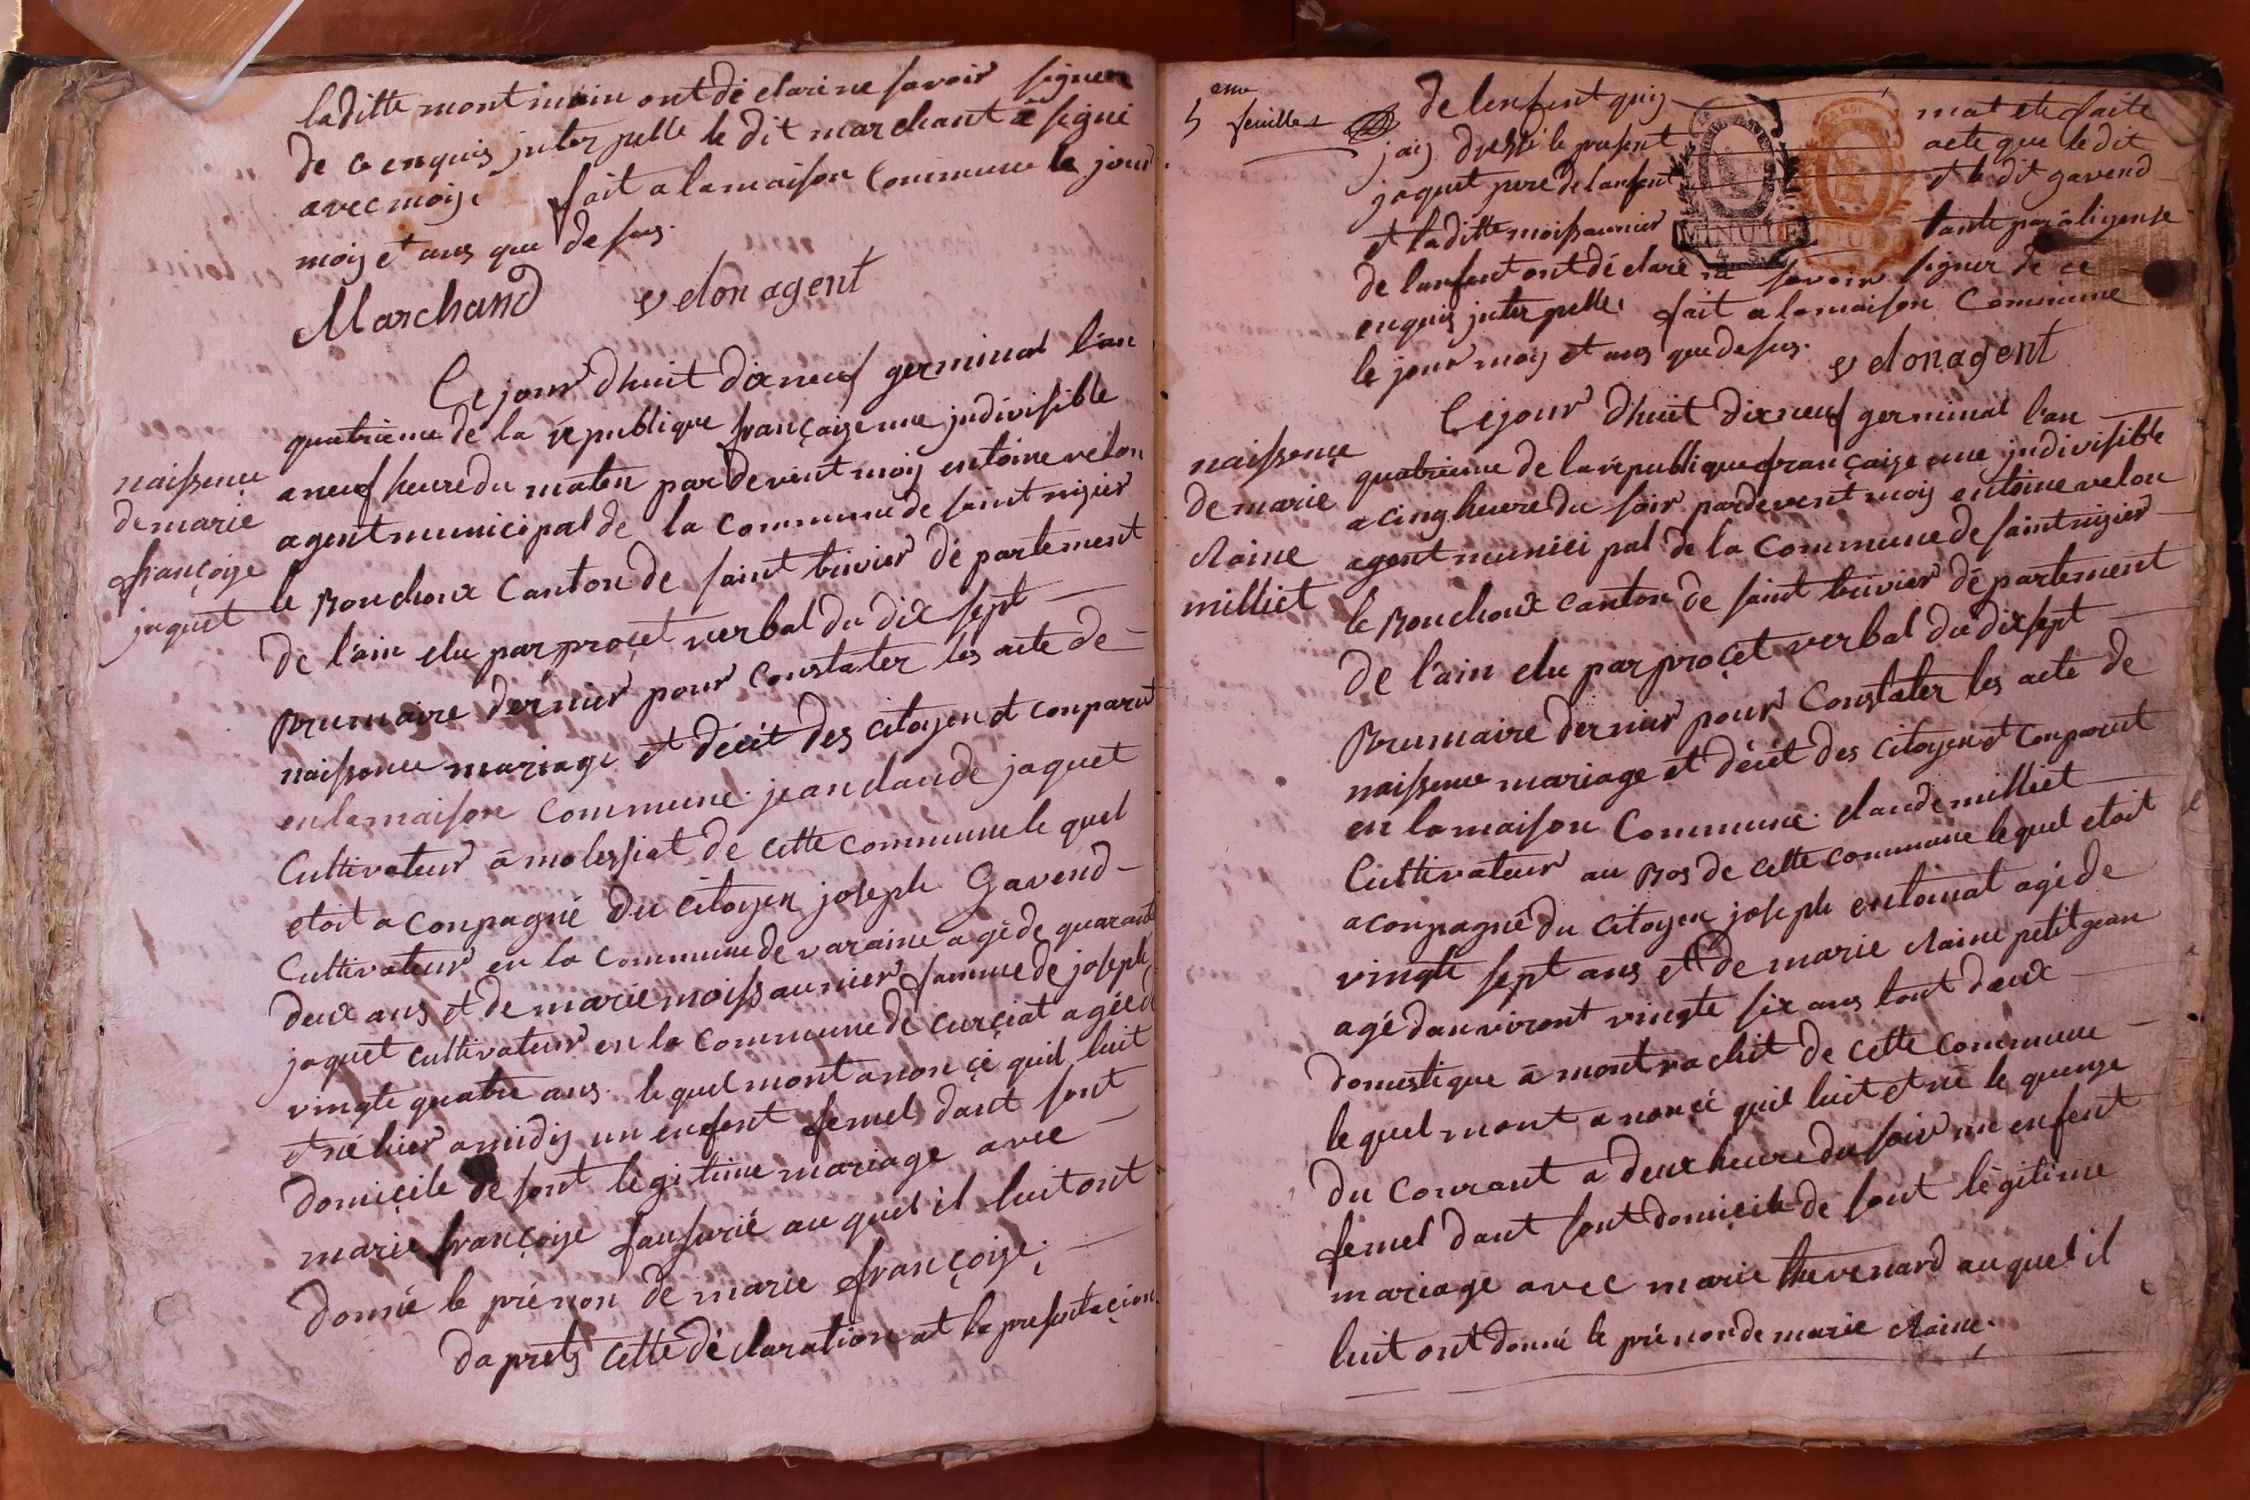 laditte montmain ont dé claré ne savoir signer
de ce enquis juter pelle le dit marchant à signé
avec moij. fait a la maison Commune le jour
moij et ans que desus.
Marchand velon agent
Ce jour d'huit dix neuf germinal l'an
quatrieme de la république françaize une judivisible
a neuf heure du maten par devent moij entoine velon
agent municipal de la Commune de saint nizier
le Bouchoux Canton de saint trivier département
de l'ain elu par proçet verbal du dix sept
Brumaire dernier pour Constater les acte de
naissence mariage et décèt des citoyen et conparut
en la maison Commune. jean claude jaquet
Cultivateur à molessiat de cette commune le quel
etoit aconpagné du citoyen joseph Gavend
Cultivateur en la Commune de varaine agé de quarante
deux ans et de marie moissaunier famme de joseph
jaquet cultivateur en la Commune de curçiat agée de
vingte quatre ans. le quel mont anon çé quil luit
et né hier a midij un enfent femel dant sont
domicile de sont legitime mariage avec
marie françoize fausurié au quel il luit ont
donné le prénon de marie françoize.
da prets cette déclaration at la presentaçion
naissence
de marie
françoize
jaquet
5 eme
feuille
de lenfent quij mat ete faite
jaij dressé le present acte que le dit
jaquet pere de lanfent et le dit gavend
et laditte moissaunier tante par aligense
MINUTE
de lanfent ont dé claré ne savoir signer de ce
enquis juter pelle. fait a la maison Commune
le jour moij et ans que desus. velon agent
Ce jour d'huit dix neuf germinal l'an
quatrieme de la république françaize une judivisible
a cinq heure du soir par devent moij entoine velon
agent municipal de la Commune de saint nizier
le Bouchoux canton de saint trivier département
de l'ain elu par proçet verbal du dix sept
Brumaire dernier pour Constater les acte de
naissence mariage et décèt des citoyen et conparut
en la maison Commune. claude milliet
Cultivateur au Bos de cette commune le quel etoit
aconpagné du citoyen joseph entomat agé de
vingte sept ans et de marie claine petit jean
agé dauviront vingte six ans tout deux
domestique à montrachit de cette commune
le quel mont a nonçé quil luit et né le quenze
du courant a deux heure du soir un enfent
femel dant sont domicile de sont légitime
mariage avec marie thevenard au quel il
luit ont donné le prénon de marie claine.
naissence
de marie
claine
milliet